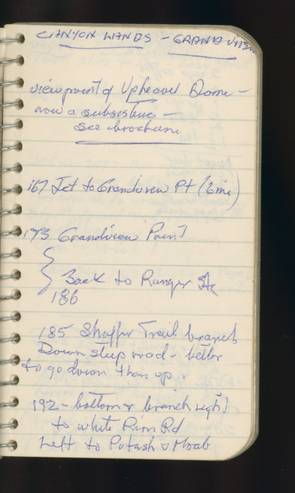 CANYON LANDS - GRAND VIEW
viewpoint of Upheaval Dome -
now a subsistence -
see brochure
167 Jct to Grandview Pt (6 mi)
173 Grandview Point
Back to Ranger Sta
186
185 Shaffer Trail branch
Down steep road - better
to go down than up.
192 - bottom & branch right
to white Rim Rd
Left to Potash & Moab